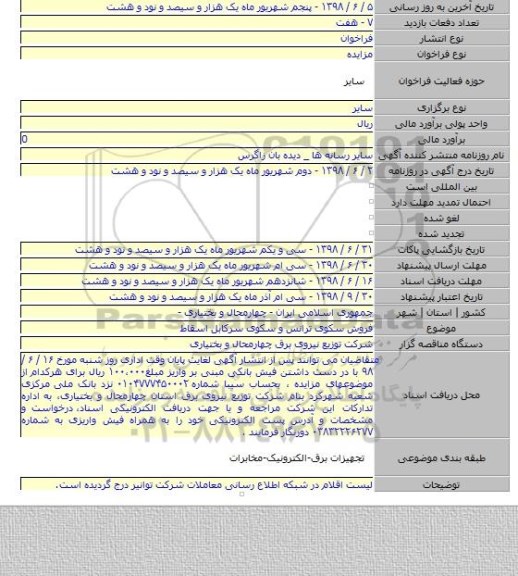 تاریخ آخرین به روز رسانی ۵ / ۶ / ۱۳۹۸ - پنجم شهریور ماه یک هزار و سیصد و نود و هشت
تعداد دفعات بازدید ۷ - هفت
نوع انتشار فراخوان
نوع فراخوان مزایده
حوزه فعالیت فراخوان سایر
نوع برگزاری سایر
واحد پولی برآورد مالی ریال
برآورد مالی 0
نام روزنامه منتشر کننده آگهی سایر رسانه ها _ دیده بان زاگرس
تاریخ درج آگهی در روزنامه ۲ / ۶ / ۱۳۹۸ - دوم شهریور ماه یک هزار و سیصد و نود و هشت
بین المللی است
احتمال تمدید مهلت دارد
لغو شده
تجدید شده
تاریخ بازگشایی پاکات ۳۱ / ۶ / ۱۳۹۸ - سی و یکم شهریور ماه یک هزار و سیصد و نود و هشت
مهلت ارسال پیشنهاد ۳۰ / ۶ / ۱۳۹۸ - سی ام شهریور ماه یک هزار و سیصد و نود و هشت
مهلت دریافت اسناد ۱۶ / ۶ / ۱۳۹۸ - شانزدهم شهریور ماه یک هزار و سیصد و نود و هشت
تاریخ اعتبار پیشنهاد ۳۰ / ۹ / ۱۳۹۸ - سی ام آذر ماه یک هزار و سیصد و نود و هشت
کشور | استان | شهر جمهوری اسلامی ایران - چهارمحال و بختیاری -
موضوع فروش سکوی ترانس و سکوی سرکابل اسقاط
دستگاه مناقصه گزار شرکت توزیع نیروی برق چهارمحال و بختیاری
محل دریافت اسناد متقاضیان می توانند پس از انتشار آگهی لغایت پایان وقت اداری روز شنبه مورخ ۱۶ / ۶ /
۹۸ با در دست داشتن فیش بانکی مبنی بر واریز مبلغ ۱۰۰،۰۰۰ ریال برای هرکدام از
موضوعهای مزایده ، بحساب سیبا شماره ۰۱۰۴۷۷۷۴۵۰۰۰۲ نزد بانک ملی مرکزی
شعبه شهرکرد بنام شرکت توزیع نیروی برق استان چهارمحال و بختیاری، به اداره
تدارکات این شرکت مراجعه و یا جهت دریافت الکترونیکی اسناد، درخواست و
مشخصات و آدرس پست الکترونیکی خود را به همراه فیش واریزی به شماره
۰۳۸۳۲۲۲۶۲۷۷ دورنگار فرمایند .
طبقه بندی موضوعی تجهیزات برق-الکترونیک-مخابرات
توضیحات لیست اقلام در شبکه اطلاع رسانی معاملات شرکت توانیر درج گردیده است.